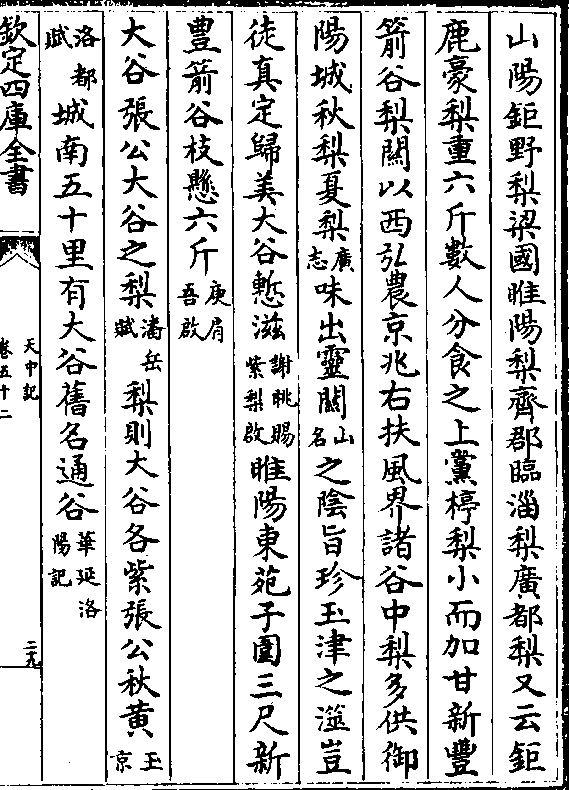 山陽鉅野梨梁國睢陽梨齊郡臨淄梨廣都梨又云鉅
鹿豪梨重六斤數人分食之上黨楟梨小而加甘新豐
箭谷梨關以西弘農京兆右扶風界諸谷中梨多供御
陽城秋梨夏梨廣志味出靈關山名之陰旨珍玉津之澨豈
徒真定歸美大谷慙滋謝朓賜紫梨啟睢陽東苑子圍三尺新
豐箭谷枝懸六斤庾肩吾啟
大谷張公大谷之梨潘岳賦梨則大谷各紫張公秋黄王京
洛都賦城南五十里有大谷舊名通谷華延洛陽記
欽定四庫全書
天中記
卷五十二
二九